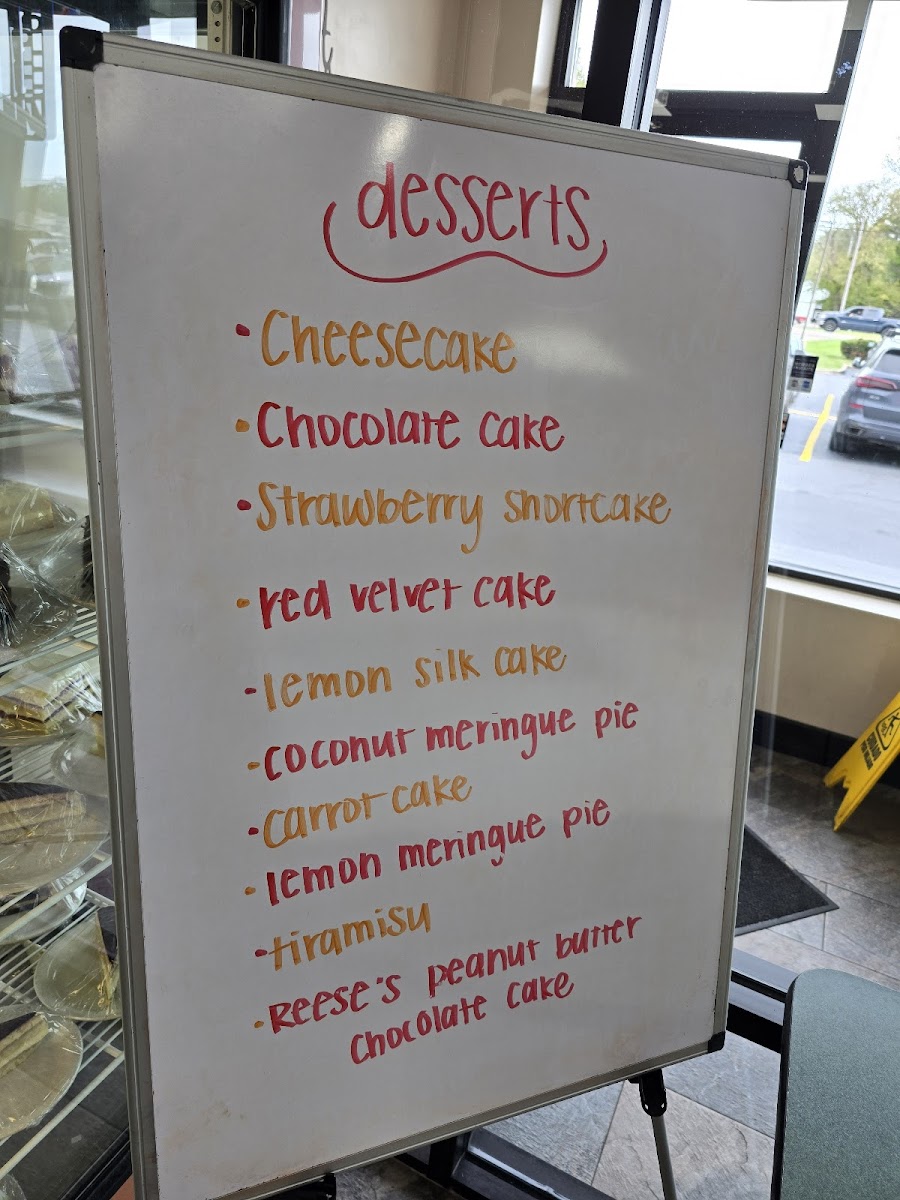 desserts
• Cheesecake
• Chocolate cake
• Strawberry shortcake
• red velvet cake
• lemon silk cake
• coconut meringue pie
• carrot cake
• lemon meringue pie
• tiramisu
• Reese's peanut butter
chocolate cake